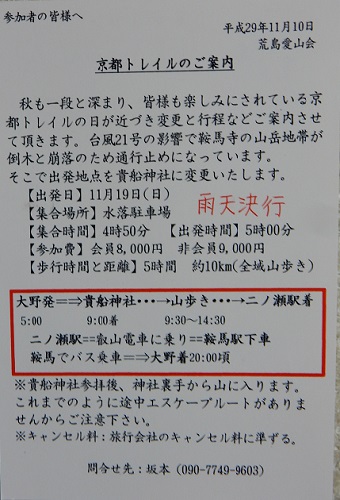 参加者の皆様へ
平成29年11月10日
荒島愛山会
京都トレイルのご案内
秋も一段と深まり、皆様も楽しみにされている京
都トレイルの日が近づき変更と行程などご案内させ
て頂きます。台風21号の影響で鞍馬寺の山岳地帯が
倒木と崩落のため通行止めになっています。
そこで出発地点を貴船神社に変更いたします。
【出発日】11月19日(日)
【集合場所】水落駐車場 雨天決行
【集合時間】4時50分 【出発時間】5時00分
【参加費】会員8,000円 非会員9,000円
【歩行時間と距離】5時間 約10km(全域山歩き)
大野発==⇒貴船神社・・・→山歩き・・・→二ノ瀬駅着
5:00 9:00着 9:30~14:30
二ノ瀬駅==叡山電車に乗り==鞍馬駅下車
鞍馬でバス乗車==⇒大野着20:00頃
※貴船神社参拝後、神社裏手から山に入ります。
これまでのように途中エスケープルートがありま
せんからご注意下さい。
※キャンセル料:旅行会社のキャンセル料に準ずる。
問合せ先:坂本(090-7749-9603)